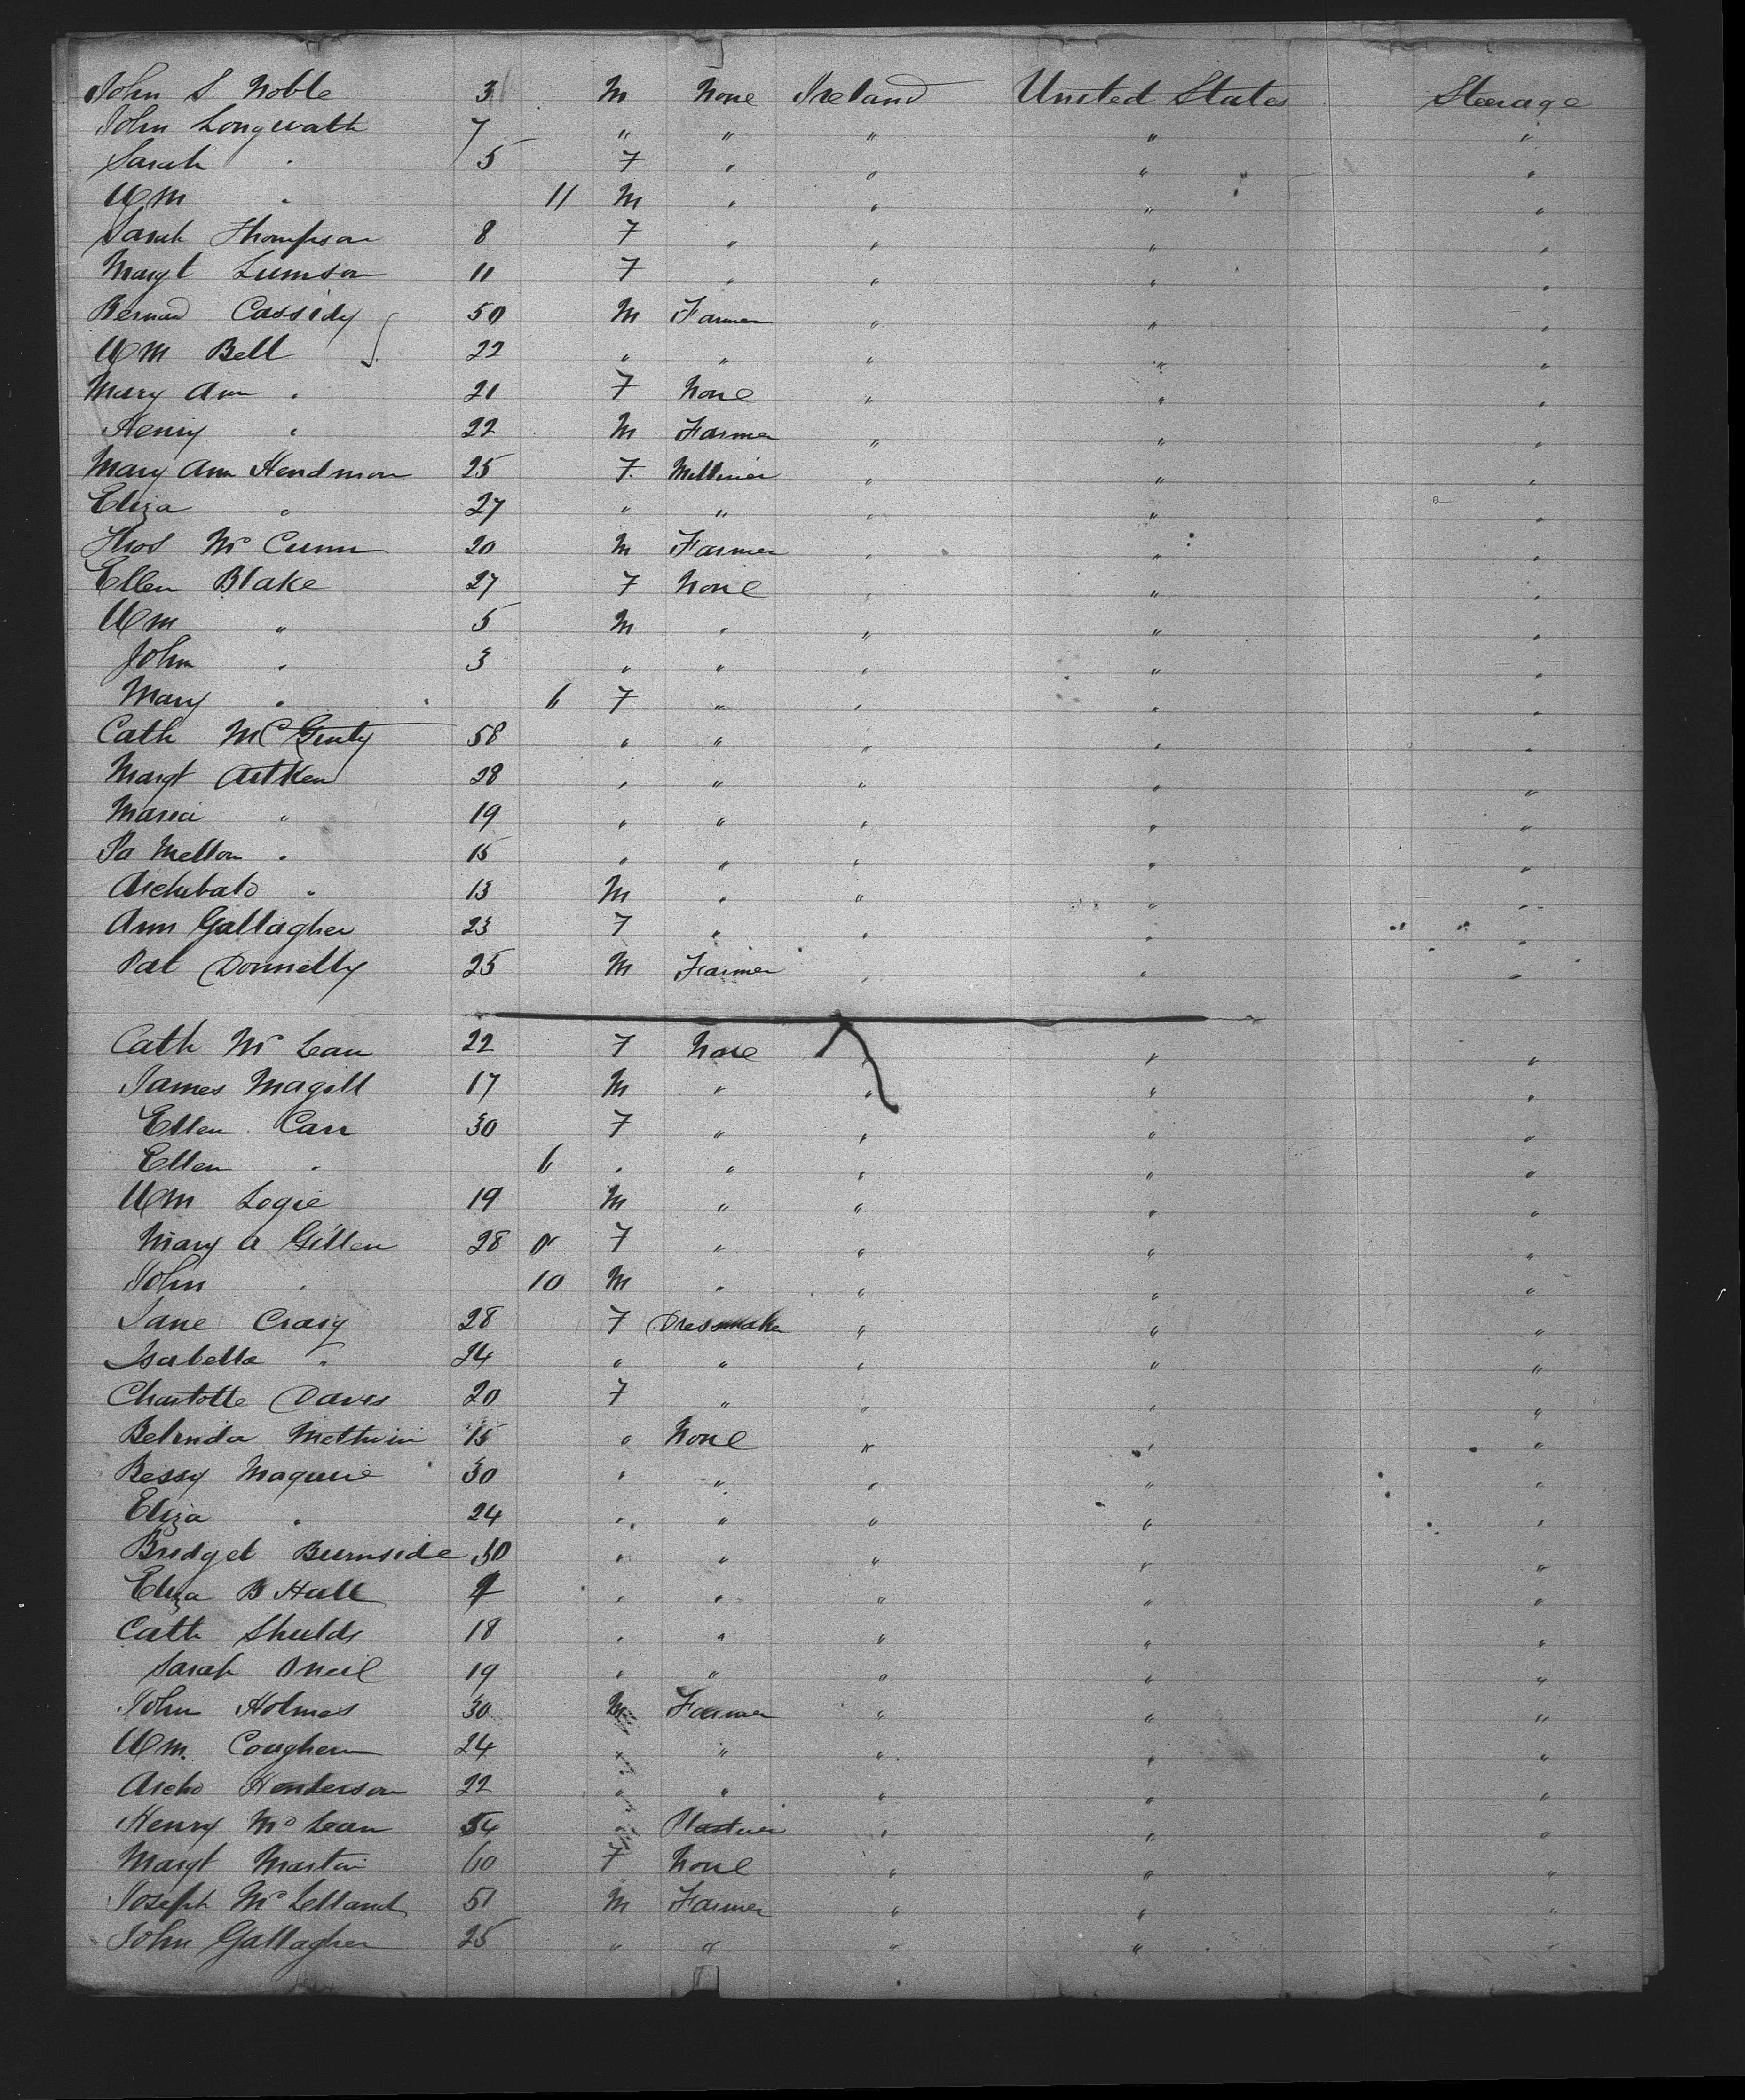 John S Noble 3 M None Ireland United States Steerage
John Longwath 7 " " " " "
Sarah " 5 F " " " "
Wm " 11 M " " " "
Sarah Thompson 8 F " " " "
Margt Lumson 11 F " " " "
Bernard Cassidy 50 M Farmer " " "
Wm Bell 22 " " " " "
Mary Ann " 21 F None " " "
Henry " 22 M Farmer " " "
Mary Ann Hendmon 25 F Milliner " " "
Eliza " 27 " " " " "
Thos McCunn 20 M Farmer " " "
Ellen Blake 27 F None " " "
Wm " 5 M " " " "
John " 3 " " " " "
Mary " 6 F " " " "
Cath McGinty 58 " " " " "
Margt Aitken 28 " " " " "
Maria " 19 " " " " "
" 15 " " " " "
Archibald " 13 M " " " "
Ann Gallagher 23 F " " " "
Pat Donnelly 25 M Farmer " " "
Cath McLean 22 F None " " "
James Magill 17 M " " " "
Ellen Carr 30 F " " " "
Ellen " 6 " " " " "
Wm Logie 19 M " " " "
Mary A Gillen 28 F " " " "
John " 10 M " " " "
Jane Craig 28 F Dressmaker " " "
Isabella " 24 " " " " "
Charlotte Davis 20 F " " " "
Belinda Methvin 15 " None " " "
Bessy Maguire 30 " " " " "
Eliza " 24 " " " " "
Bridget Burnside 30 " " " " "
Eliza B Hall " " " " "
Cath Shields 18 " " " " "
Sarah Oneil 19 " " " " "
John Holmes 30 M Farmer " " "
Wm. Coughern 24 " " " " "
Archd Henderson 22 " " " " "
Henry McLean 54 " Plasterer " " "
Margt Martin 60 F None " " "
Joseph McLelland 51 M Farmer " " "
John Gallagher 25 " " " " "